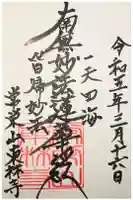 令和五年三月十六日
一天四海
南無妙法蓮華経
皆帰妙法
東林寺